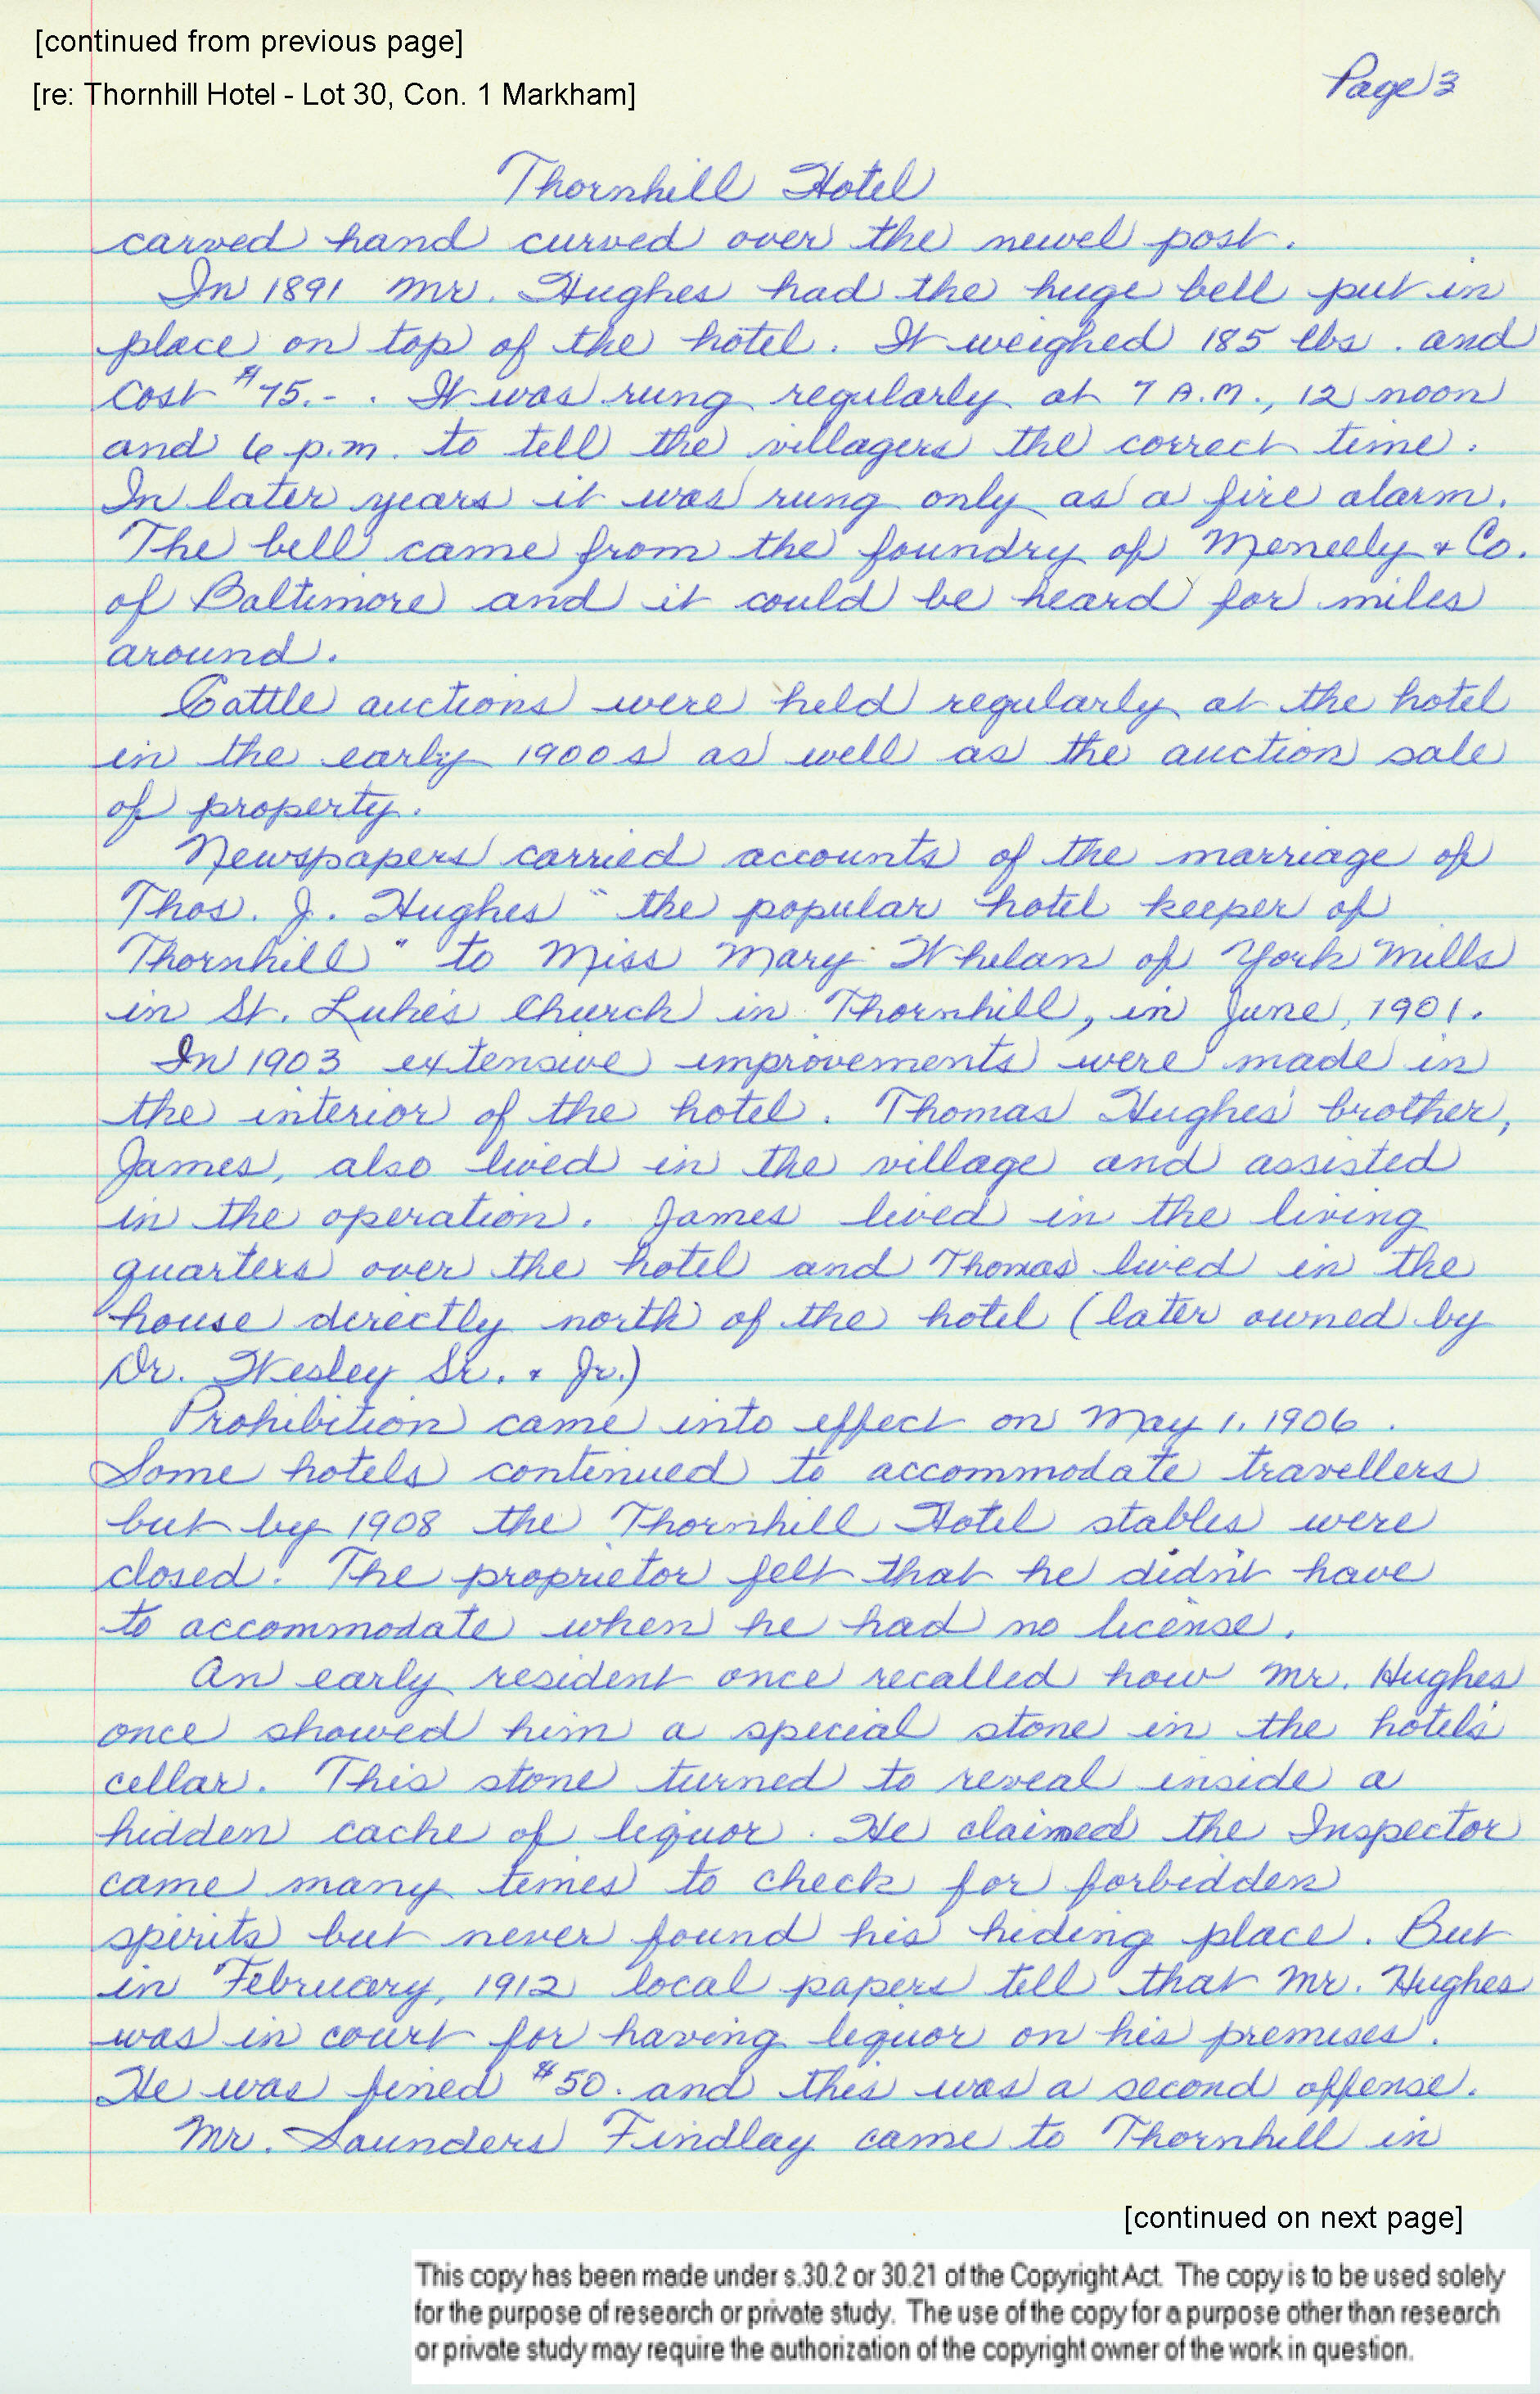 [continued from previous page]
[re: Thornhill Hotel - Lot 30, Con. 1 Markham]
Page 3
Thornhill Hotel
carved hand curved over the newel post.
In 1891 Mr. Hughes had the huge bell put in
place on top of the hotel. It weighed 185 lbs. and
cost $75.-. It was rung regularly at 7 A.M., 12 noon
and 6 p.m. to tell the villagers the correct time.
In later years it was rung only as a fire alarm.
The bell came from the foundry of Meneely & Co.
of Baltimore and it could be heard for miles
around.
Cattle auctions were held regularly at the hotel
in the early 1900s as well as the auction sale
of property.
Newspapers carried accounts of the marriage of
Thos. J. Hughes "the popular hotel keeper of
Thornhill" to Miss Mary Whelan of York Mills
in St. Luke's Church in Thornhill, in June, 1901.
In 1903 extensive improvements were made in
the interior of the hotel. Thomas Hughes' brother,
James, also lived in the village and assisted
in the operation. James lived in the living
quarters over the hotel and Thomas lived in the
house directly north of the hotel (later owned by
Dr. Wesley Sr. & Jr.)
Prohibition came into effect on May 1, 1906.
Some hotels continued to accommodate travellers
but by 1908 the Thornhill Hotel stables were
closed. The proprietor felt that he didn't have
to accommodate when he had no license.
An early resident once recalled how Mr. Hughes
once showed him a special stone in the hotel's
cellar. This stone turned to reveal inside a
hidden cache of liquor. He claimed the Inspector
came many times to check for forbidden
spirits but never found his hiding place. But
in February, 1912 local papers tell that Mr. Hughes
was in court for having liquor on his premises.
He was fined $50. and this was a second offense.
Mr. Saunders Findlay came to Thornhill in
[continued on next page]
This copy has been made under s.30.2 or 30.21 of the Copyright Act. The copy is to be used solely
for the purpose of research or private study. The use of the copy for a purpose other than research
or private study may require the authorization of the copyright owner of the work in question.